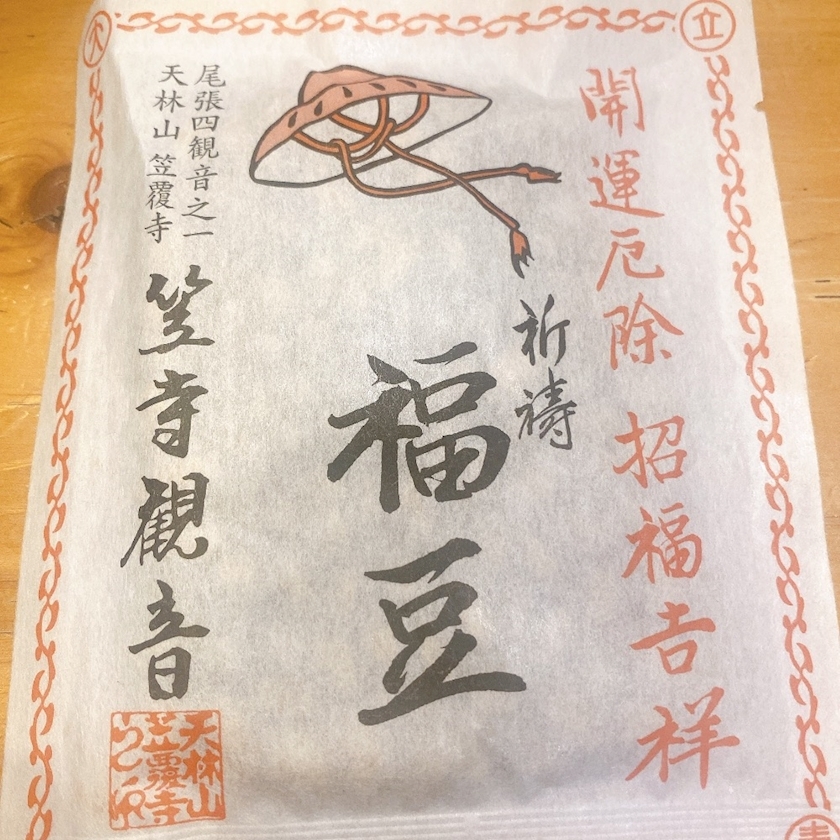 立
開運厄除 招福吉祥
祈禱
福豆
尾張四観音之一
天林山 笠覆寺
笠寺観音
天林山
笠覆寺